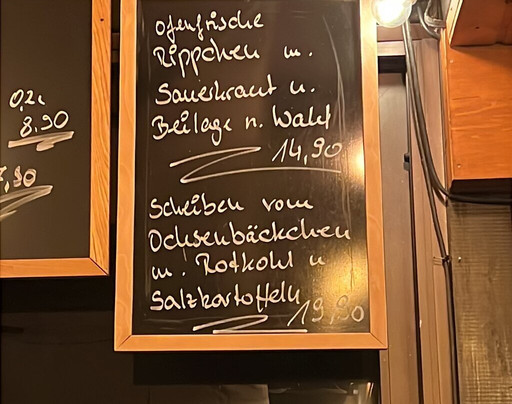 0,2l
8,90
7,90
ofenfrische
Rippchen m.
Sauerkraut u.
Beilage n. Wahl
14,90
Scheiben vom
Ochsenbäckchen
m. Rotkohl u
Salzkartoffeln
19,90